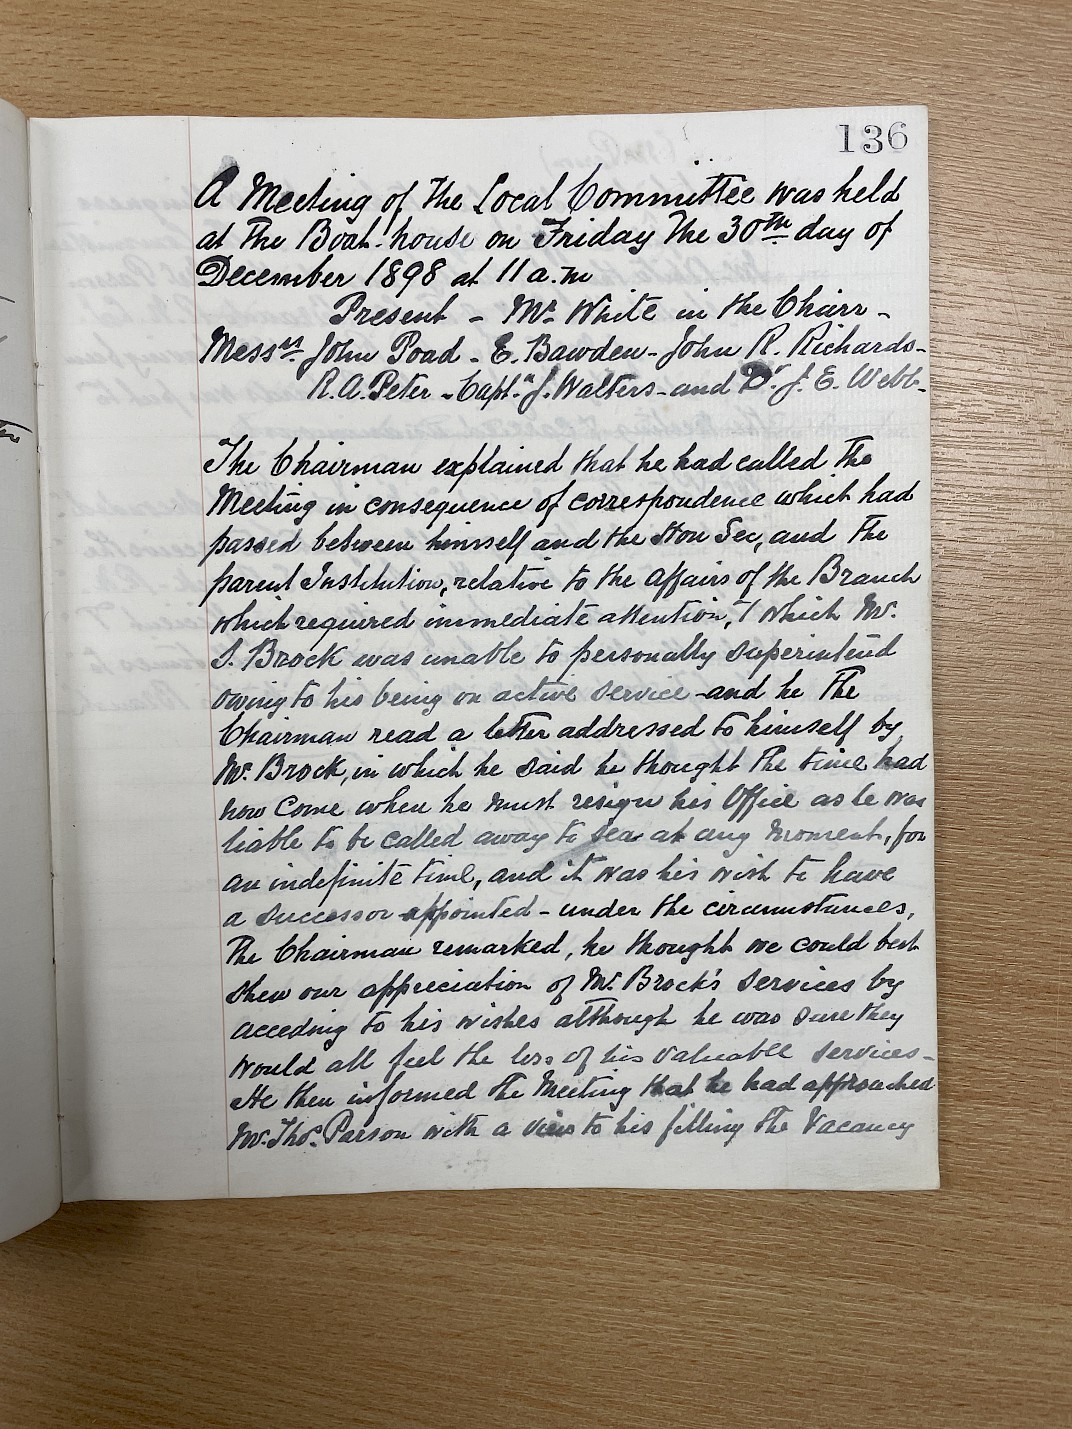 136
A Meeting of the Local Committee was held
at the Boat-house on Friday the 30th day of
December 1898 at 11 a.m
Present - Mr White in the Chair -
Messrs John Poad - E. Bawden - John R. Richards -
R. A. Peter - Captn J. Walters - and Dr J. E. Webb -
The Chairman explained that he had called the
Meeting in consequence of correspondence which had
passed between himself and the Hon Sec, and the
parent Institution, relative to the affairs of the Branch
which required immediate attention, & which Mr.
S. Brock was unable to personally superintend
owing to his being on active service - and he the
Chairman read a letter addressed to himself by
Mr. Brock, in which he said he thought the time had
now come when he must resign his Office as he was
liable to be called away to sea at any moment, for
an indefinite time, and it was his wish to have
a successor appointed - under the circumstances,
the Chairman remarked, he thought we could best
shew our appreciation of Mr. Brock's services by
acceding to his wishes although he was sure they
would all feel the loss of his valuable services -
He then informed the Meeting that he had approached
Mr. Thos. Parson with a view to his filling the Vacancy